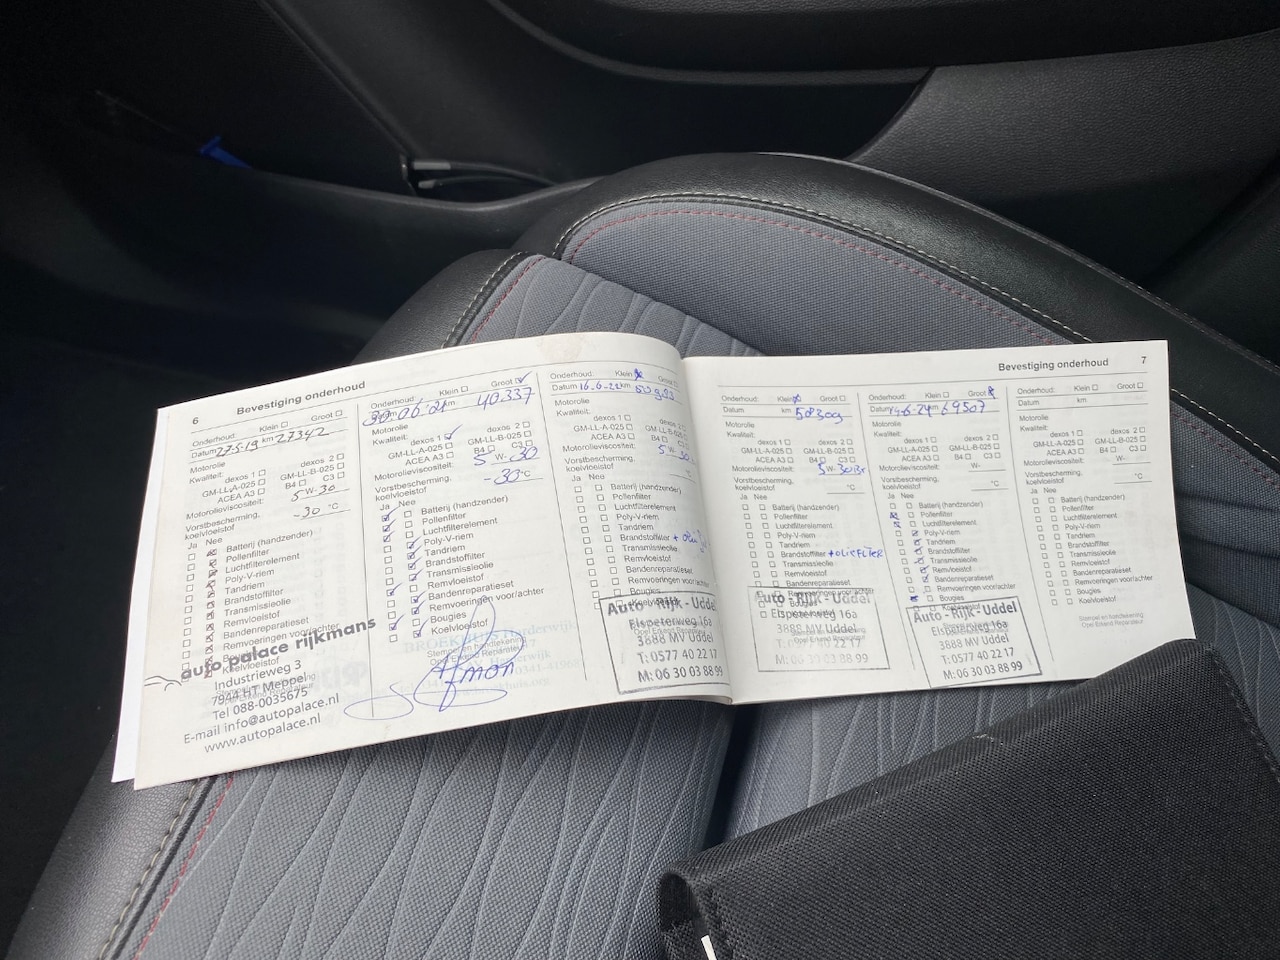 6 Bevestiging onderhoud
Onderhoud: Klein Groot
Datum 27-5-19 km 27342
Motorolie
Kwaliteit: dexos 1 dexos 2
GM-LL-A-025 GM-LL-B-025
ACEA A3 B4 C3
Motorolieviscositeit: 5 W- 30
Vorstbescherming,
koelvloeistof -30 °C
Ja Nee
Batterij (handzender)
Pollenfilter
Luchtfilterelement
Poly-V-riem
Tandriem
Brandstoffilter
Transmissieolie
Remvloeistof
Bandenreparatieset
Remvoeringen voor/achter
Koelvloeistof
auto palace rijkmans
Industrieweg 3
7944 HT Meppel
Tel 088-0035675
E-mail info@autopalace.nl
www.autopalace.nl
Onderhoud: Klein Groot
Datum 30-06-21 km 40.337
Motorolie
Kwaliteit: dexos 1 dexos 2
GM-LL-A-025 GM-LL-B-025
ACEA A3 B4 C3
Motorolieviscositeit: 5 W- 30
Vorstbescherming,
koelvloeistof -30 °C
Ja Nee
Batterij (handzender)
Pollenfilter
Luchtfilterelement
Poly-V-riem
Tandriem
Brandstoffilter
Transmissieolie
Remvloeistof
Bandenreparatieset
Remvoeringen voor/achter
Bougies
Koelvloeistof
Stempel en handtekening
Opel Erkend Reparateur
BROEKHUIS Harderwijk
Onderhoud: Klein Groot
Datum 16-6-22 km
Motorolie
Kwaliteit: dexos 1 dexos 2
GM-LL-A-025 GM-LL-B-025
ACEA A3 B4 C3
Motorolieviscositeit: 5 W- 30
Vorstbescherming,
koelvloeistof °C
Ja Nee
Batterij (handzender)
Pollenfilter
Luchtfilterelement
Poly-V-riem
Tandriem
Brandstoffilter
Transmissieolie
Remvloeistof
Bandenreparatieset
Remvoeringen voor/achter
Bougies
Koelvloeistof
Auto - Rijk - Uddel
Elspeterweg 16a
3888 MV Uddel
T: 0577 40 22 17
M: 06 30 03 88 99
Bevestiging onderhoud 7
Onderhoud: Klein Groot
Datum km 58309
Motorolie
Kwaliteit: dexos 1 dexos 2
GM-LL-A-025 GM-LL-B-025
ACEA A3 B4 C3
Motorolieviscositeit: 5 W- 30
Vorstbescherming,
koelvloeistof °C
Ja Nee
Batterij (handzender)
Pollenfilter
Luchtfilterelement
Poly-V-riem
Tandriem
Brandstoffilter + OLIEFILTER
Transmissieolie
Remvloeistof
Bandenreparatieset
Remvoeringen voor/achter
Bougies
Auto - Rijk - Uddel
Elspeterweg 16a
3888 MV Uddel
T: 0577 40 22 17
M: 06 30 03 88 99
Onderhoud: Klein Groot
Datum km 69507
Motorolie
Kwaliteit: dexos 1 dexos 2
GM-LL-A-025 GM-LL-B-025
ACEA A3 B4 C3
Motorolieviscositeit: W-
Vorstbescherming,
koelvloeistof °C
Ja Nee
Batterij (handzender)
Pollenfilter
Luchtfilterelement
Poly-V-riem
Tandriem
Brandstoffilter
Transmissieolie
Remvloeistof
Bandenreparatieset
Remvoeringen voor/achter
Bougies
Koelvloeistof
Auto - Rijk - Uddel
Elspeterweg 16a
3888 MV Uddel
T: 0577 40 22 17
M: 06 30 03 88 99
Onderhoud: Klein Groot
Datum km
Motorolie
Kwaliteit: dexos 1 dexos 2
GM-LL-A-025 GM-LL-B-025
ACEA A3 B4 C3
Motorolieviscositeit: W-
Vorstbescherming,
koelvloeistof °C
Ja Nee
Batterij (handzender)
Pollenfilter
Luchtfilterelement
Poly-V-riem
Tandriem
Brandstoffilter
Transmissieolie
Remvloeistof
Bandenreparatieset
Remvoeringen voor/achter
Bougies
Koelvloeistof
Stempel en handtekening
Opel Erkend Reparateur